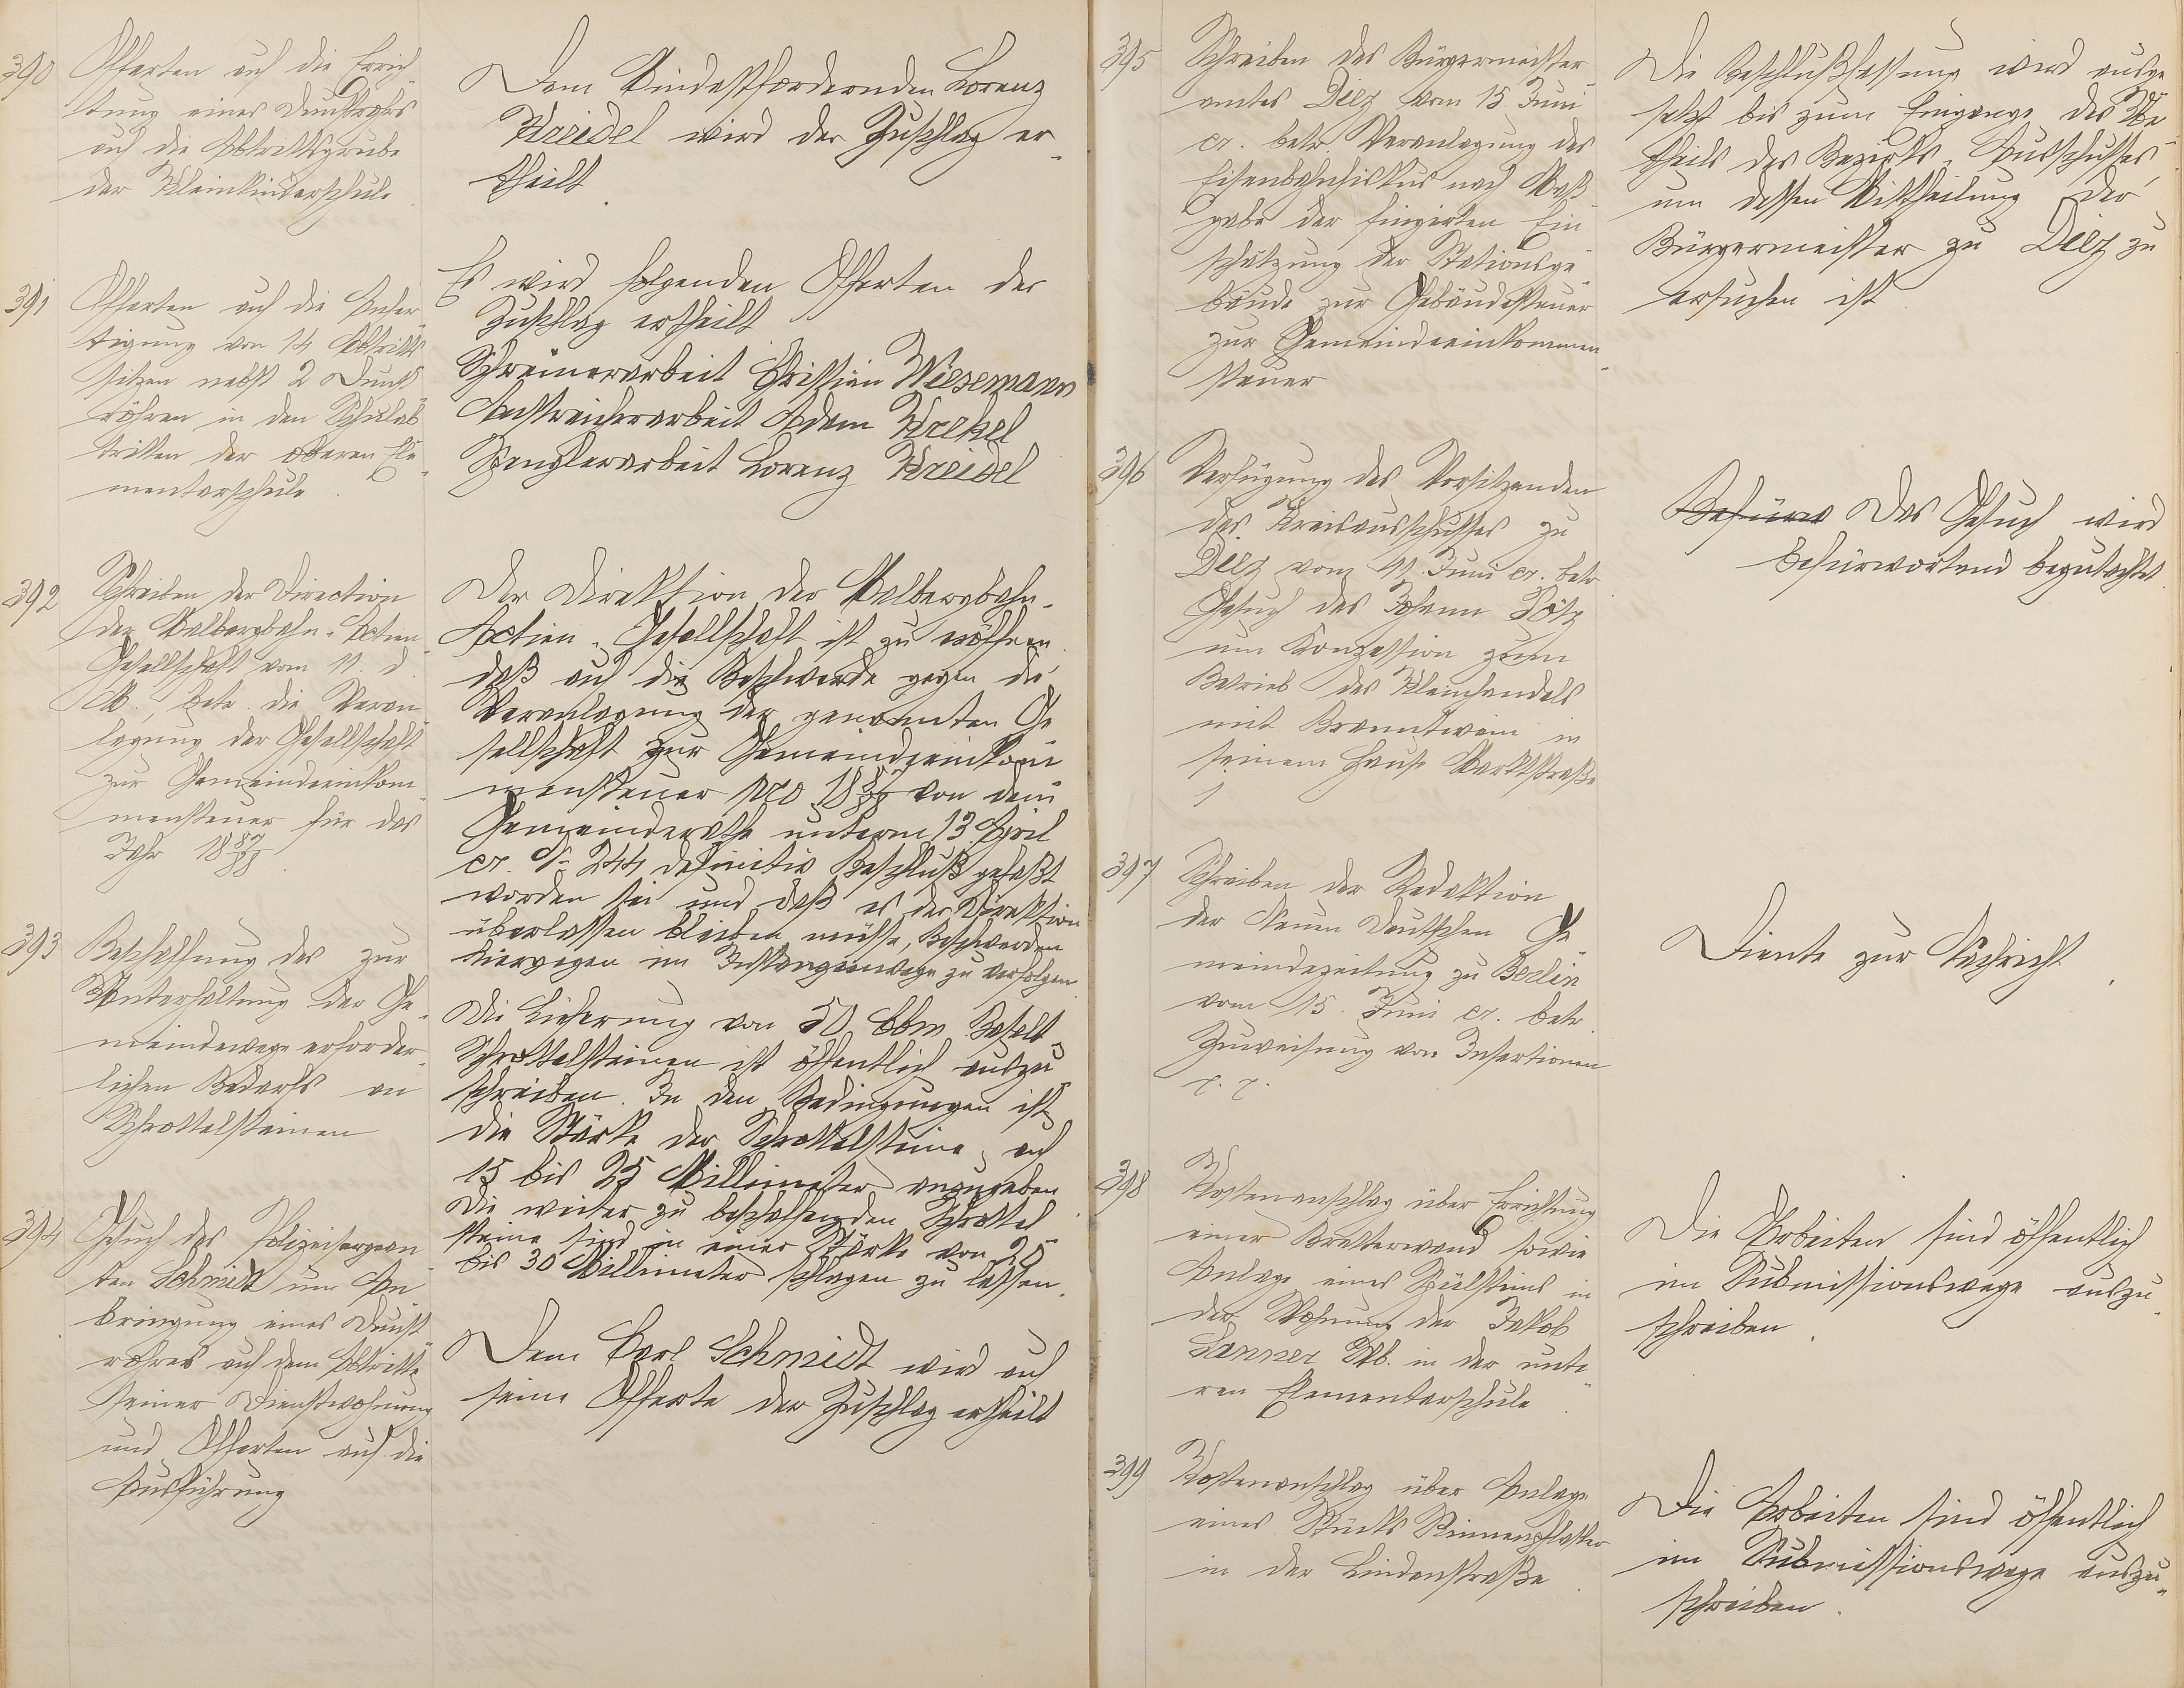 390
Offerten auf die Errich
tung eines Dunstrohrs
auf die Abtrittsgrube
der Kleinkinderschule
Dem Mindestfordernden Lorenz
Kreidel wird der Zuschlag er-
theilt.
391
Offerten auf die Anfer-
tigung von 14 Abtritts
sitzen nebst 2 Dunst
röhren in den Schulab
tritten der oberen Ele-
mentarschule.
Es wird folgenden Offerten der
Zuschlag ertheilt
Schreinerarbeit Christian Wiesemann
Anstreicherarbeit Adam Krekel
Spenglerarbeit Lorenz Kreidel
392
Schreiben der Direction
der Malbergbahn-Actien-
Gesellschaft vom 11. d.
M., betr. die Veran-
lagung der Gesellschaft
zur Gemeindeeinkom-
mensteuer für das
Jahr 1887/88.
Der Direktion der Malbergbahn-
Actien-Gesellschaft ist zu eröffnen
daß auf die Beschwerde gegen die
Veranlagung der genannten Ge
sellschaft zur Gemeindeeinkom
mensteuer pro 1887/88 von dem
Gemeinderathe unterm 13. April
cr. N- 244 definitiv Beschluß gefaßt
worden sei und daß es der Direktion
überlassen bleiben müsse, Beschwerden
hiergegen im Instanzenwege zu verfolgen.
393
Beschaffung des zur
Unterhaltung der Ge-
meindewege erforder-
lichen Bedarfs an
Schrottelsteinen
Die Lieferung von 50 Cbm Basalt-
Schrottelsteinen ist öffentlich auszu
schreiben. In den Bedingungen ist
die Stärke der Schrottelsteine auf
15 bis 25 Millimeter anzugeben.
Die weiter zu beschaffenden Schrottel
steine sind in einer Stärke von 25
bis 30 Millimeter schlagen zu lassen.
394
Gesuch des Polizeisergean
ten Schmidt um An
bringung eines Dunst
rohres auf dem Abtritte
seiner Dienstwohnung
und Offerten auf die
Ausführung
Dem Carl Schmidt wird auf
seine Offerte der Zuschlag ertheilt
395
Schreiben des Bürgermeister-
amtes Diez vom 15. Juni
cr. betr. Veranlagung des
Eisenbahnfiskus nach Maß-
gabe der fingirten Ein-
schätzung der Stationsge-
bäude zur Gebäudesteuer
zur Gemeindeeinkommen-
steuer
Die Beschlußfassung wird ausge
setzt bis zum Eingange des Ur-
theils des Bezirks-Ausschusses,
um dessen Mittheilung der
Bürgermeister zu Diez zu
ersuchen ist
396
Verfügung des Vorsitzenden
des Kreisausschusses zu
Diez vom 11. Juni cr. betr
Gesuch des Johann Pötz
um Konzession zum
Betrieb des Kleinhandels
mit Branntwein in
seinem Hause Marktstraße
1
Befürw Das Gesuch wird
befürwortend begutachtet.
397
Schreiben der Redaktion
der Neuen Deutschen Ge-
meindezeitung zu Berlin
vom 15. Juni cr. betr.
Zuweisung von Insertionen
Diente zur Nachricht.
398
Kostenanschlag über Errichtung
einer Bretterwand sowie
Anlage eines Spülsteins in
der Wohnung der Jakob
Sanner Wb. in der unte-
ren Elementarschule.
Die Arbeiten sind öffentlich
im Submissionswege auszu-
schreiben.
399
Kostenanschlag über Anlage
eines Stücks Rinnenpflaster
in der Lindenstraße.
Die Arbeiten sind öffentlich
im Submissionswege auszu-
schreiben.